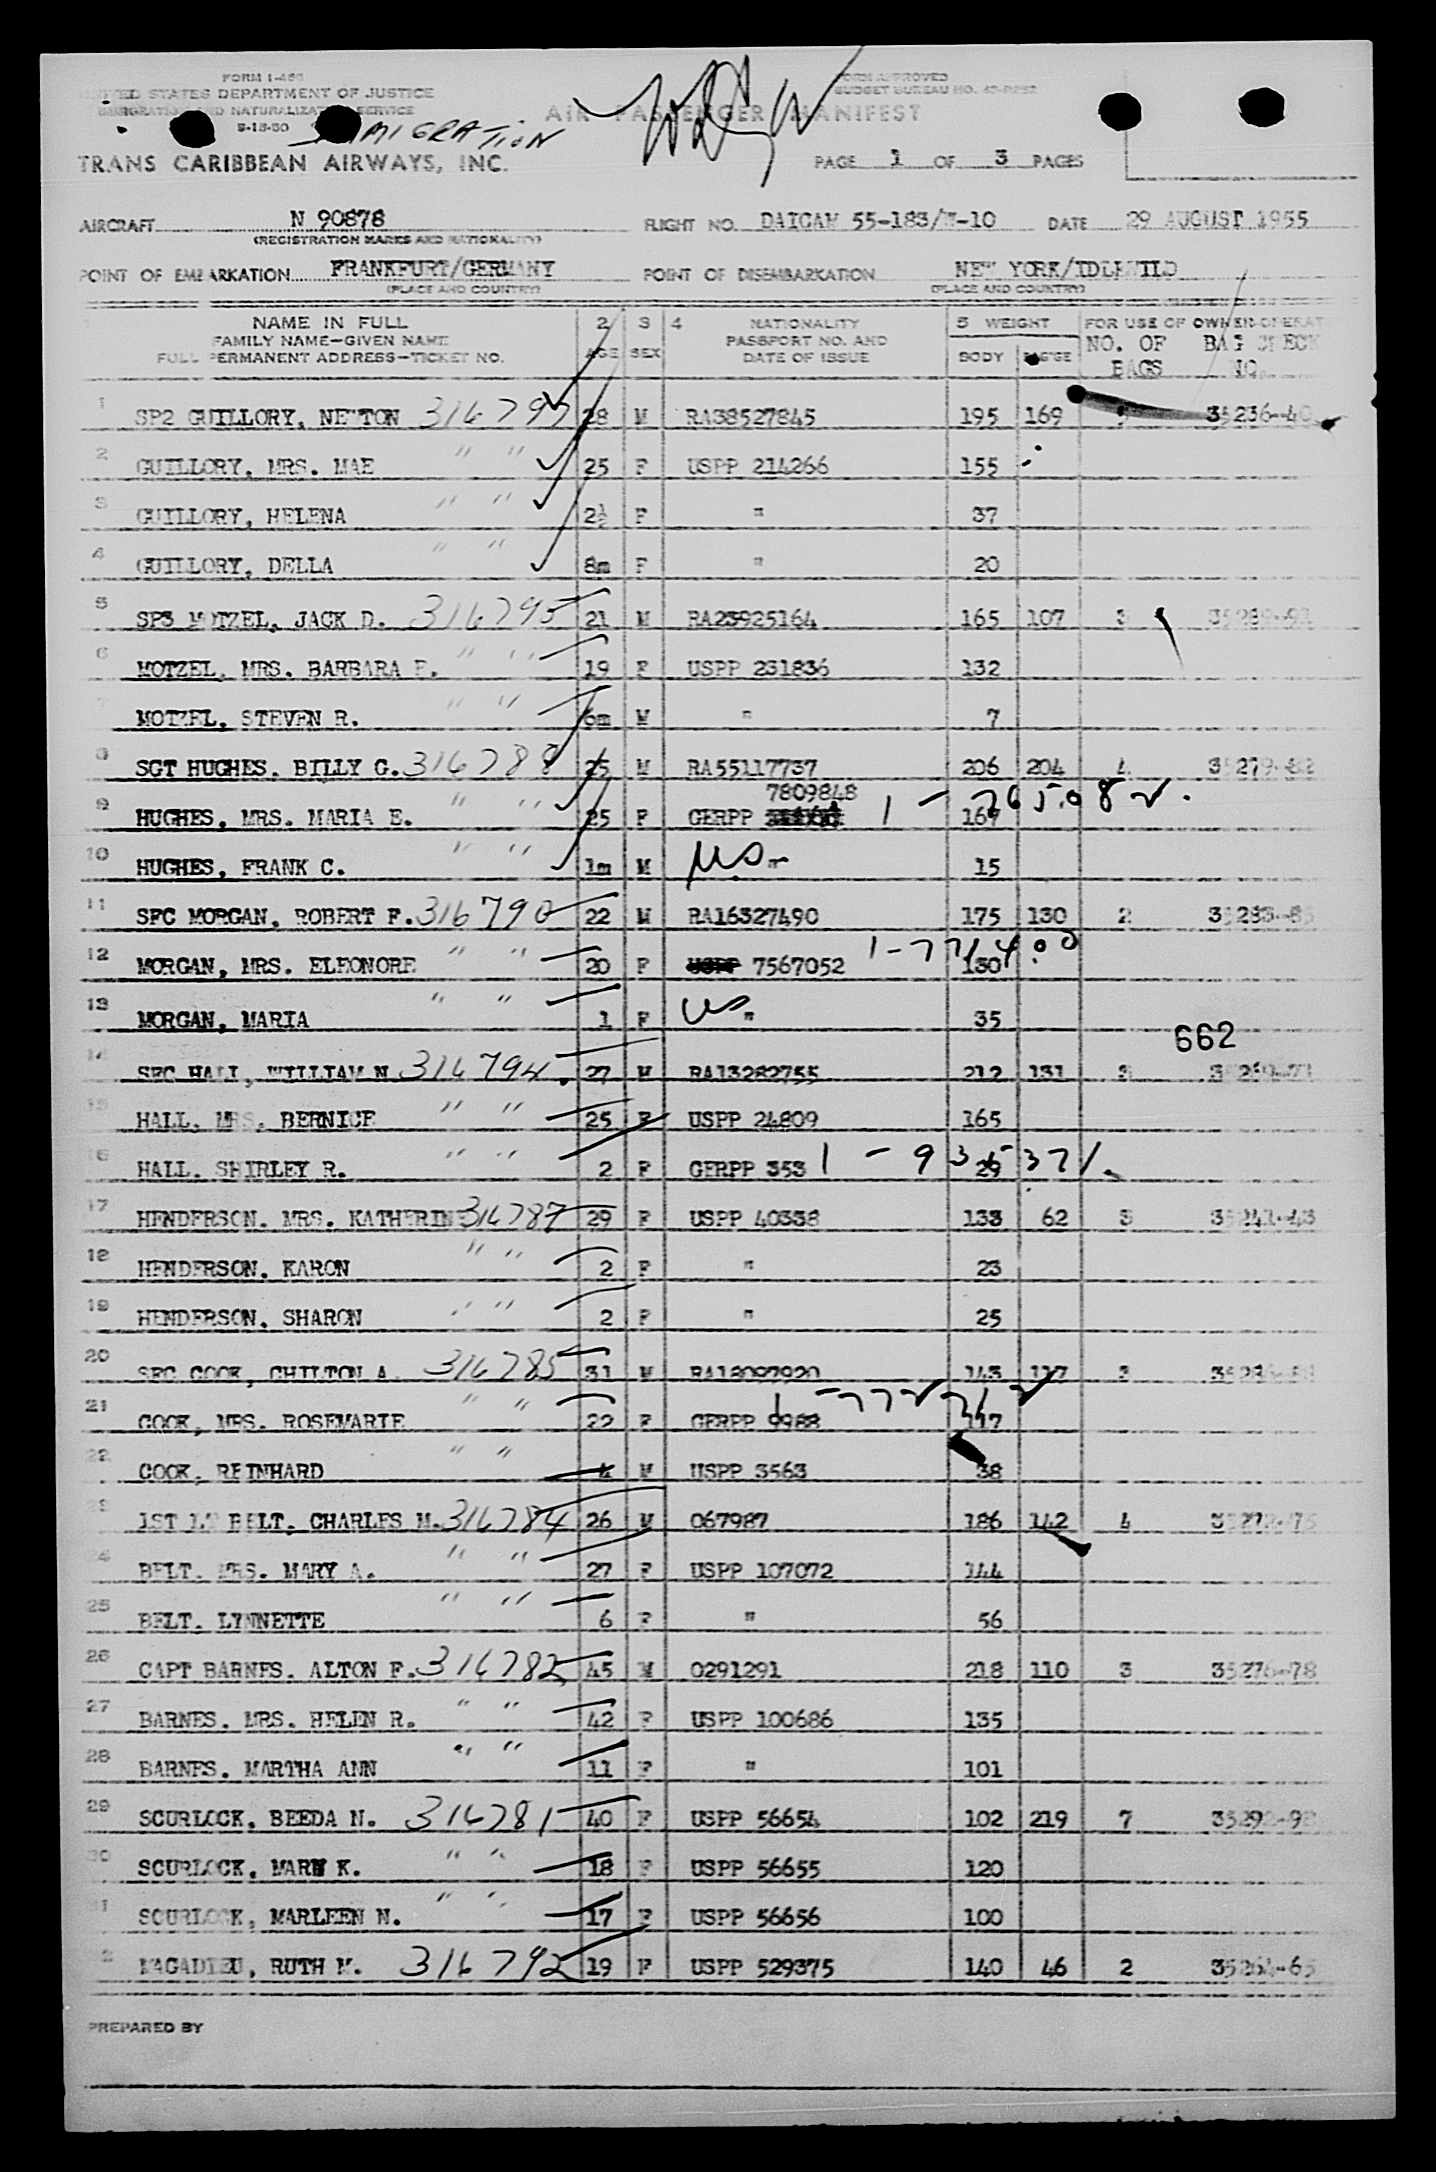 FORM I-466
UNITED STATES DEPARTMENT OF JUSTICE
IMMIGRATION AND NATURALIZATION SERVICE
9-15-50
IMMIGRATION
FORM APPROVED
BUDGET BUREAU NO.
AIR PASSENGER MANIFEST
TRANS CARIBBEAN AIRWAYS, INC.
PAGE 1 OF 3 PAGES
AIRCRAFT N 90878 FLIGHT NO. DAICAM 55-183/W-10 DATE 29 AUGUST 1955
(REGISTRATION MARKS AND NATIONALITY)
POINT OF EMBARKATION FRANKFURT/GERMANY POINT OF DISEMBARKATION NEW YORK/IDLEWILD
(PLACE AND COUNTRY) (PLACE AND COUNTRY)
NAME IN FULL 2 3 4 NATIONALITY 5 WEIGHT FOR USE OF OWNER-OPERAT
FAMILY NAME—GIVEN NAME PASSPORT NO. AND NO. OF BAG CHECK
FULL PERMANENT ADDRESS—TICKET NO. AGE SEX DATE OF ISSUE BODY BAG'GE BAGS NO.
1 SP2 GUILLORY, NEWTON 28 M RA38527845 195 169 5 35236-40
2 GUILLORY, MRS. MAE " " 25 F USPP 214266 155
3 GUILLORY, HELENA " " 2½ F " 37
4 GUILLORY, DELLA " " 8m F " 20
5 SP3 MOTZEL, JACK D. 316795 21 M RA23925164 165 107 3
6 MOTZEL, MRS. BARBARA E. " " 19 F USPP 231836 132
7 MOTZEL, STEVEN R. " " 6m M " 7
8 SGT HUGHES, BILLY G. 316788 25 M RA55117737 206 204 4 35279-82
7809848
9 HUGHES, MRS. MARIA E. " " 25 F GERPP 167
10 HUGHES, FRANK C. " " 1m M US " 15
11 SFC MORGAN, ROBERT F. 316790 22 M RA16327490 175 130 2
12 MORGAN, MRS. ELEONORE " " 20 F 7567052 130
13 MORGAN, MARIA " " 1 F US " 35
662
14 SFC HALL, WILLIAM N 316794 27 M RA13282755 212 131 3
15 HALL, MRS. BERNICE " " 25 F USPP 24809 165
16 HALL, SHIRLEY R. " " 2 F GERPP 353 29
17 HENDERSON, MRS. KATHERIN 316787 29 F USPP 40338 133 62 3 35241-43
18 HENDERSON, KARON " " 2 F " 23
19 HENDERSON, SHARON " " 2 F " 25
20 SFC COOK, CHILTON A. 316785 31 M RA18097920 143 117 3
21 COOK, MRS. ROSEMARIE " " 22 F GERPP 9988 117
22 COOK, REINHARD " " 4 M USPP 3563 38
23 1ST LT BELT, CHARLES M. 316784 26 M 067987 186 142 4 35272-75
24 BELT, MRS. MARY A. " " 27 F USPP 107072 144
25 BELT, LYNNETTE " " 6 F " 56
26 CAPT BARNES, ALTON F. 316782 45 M 0291291 218 110 3 35276-78
27 BARNES, MRS. HELEN R. " " 42 F USPP 100686 135
28 BARNES, MARTHA ANN " " 11 F " 101
29 SCURLOCK, BEEDA N. 316781 40 F USPP 56654 102 219 7 35292-98
30 SCURLOCK, MARY K. " " 18 F USPP 56655 120
31 SCURLOCK, MARLEEN N. " " 17 F USPP 56656 100
32 MAGADIEU, RUTH M. 316792 19 F USPP 529375 140 46 2 35264-65
PREPARED BY